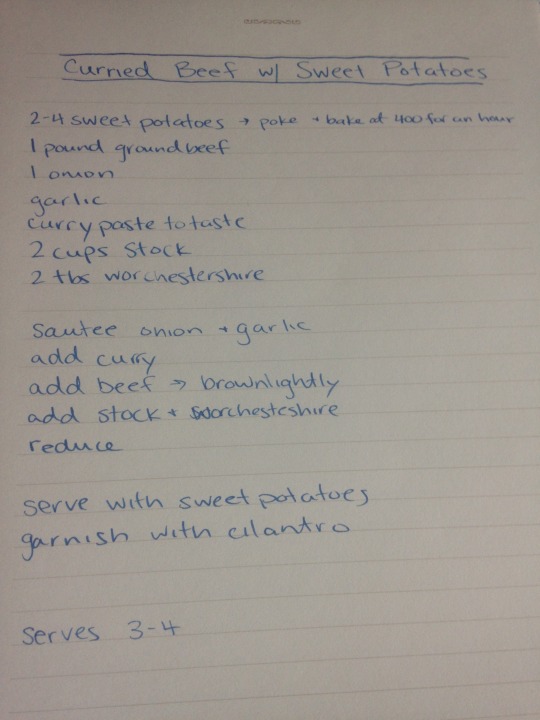 Curried Beef w/ Sweet Potatoes
2-4 sweet potatoes → poke + bake at 400 for an hour
1 pound ground beef
1 onion
garlic
curry paste to taste
2 cups stock
2 tbs worchestershire
sautee onion + garlic
add curry
add beef → brown lightly
add stock + worchesteshire
reduce
serve with sweet potatoes
garnish with cilantro
serves 3-4